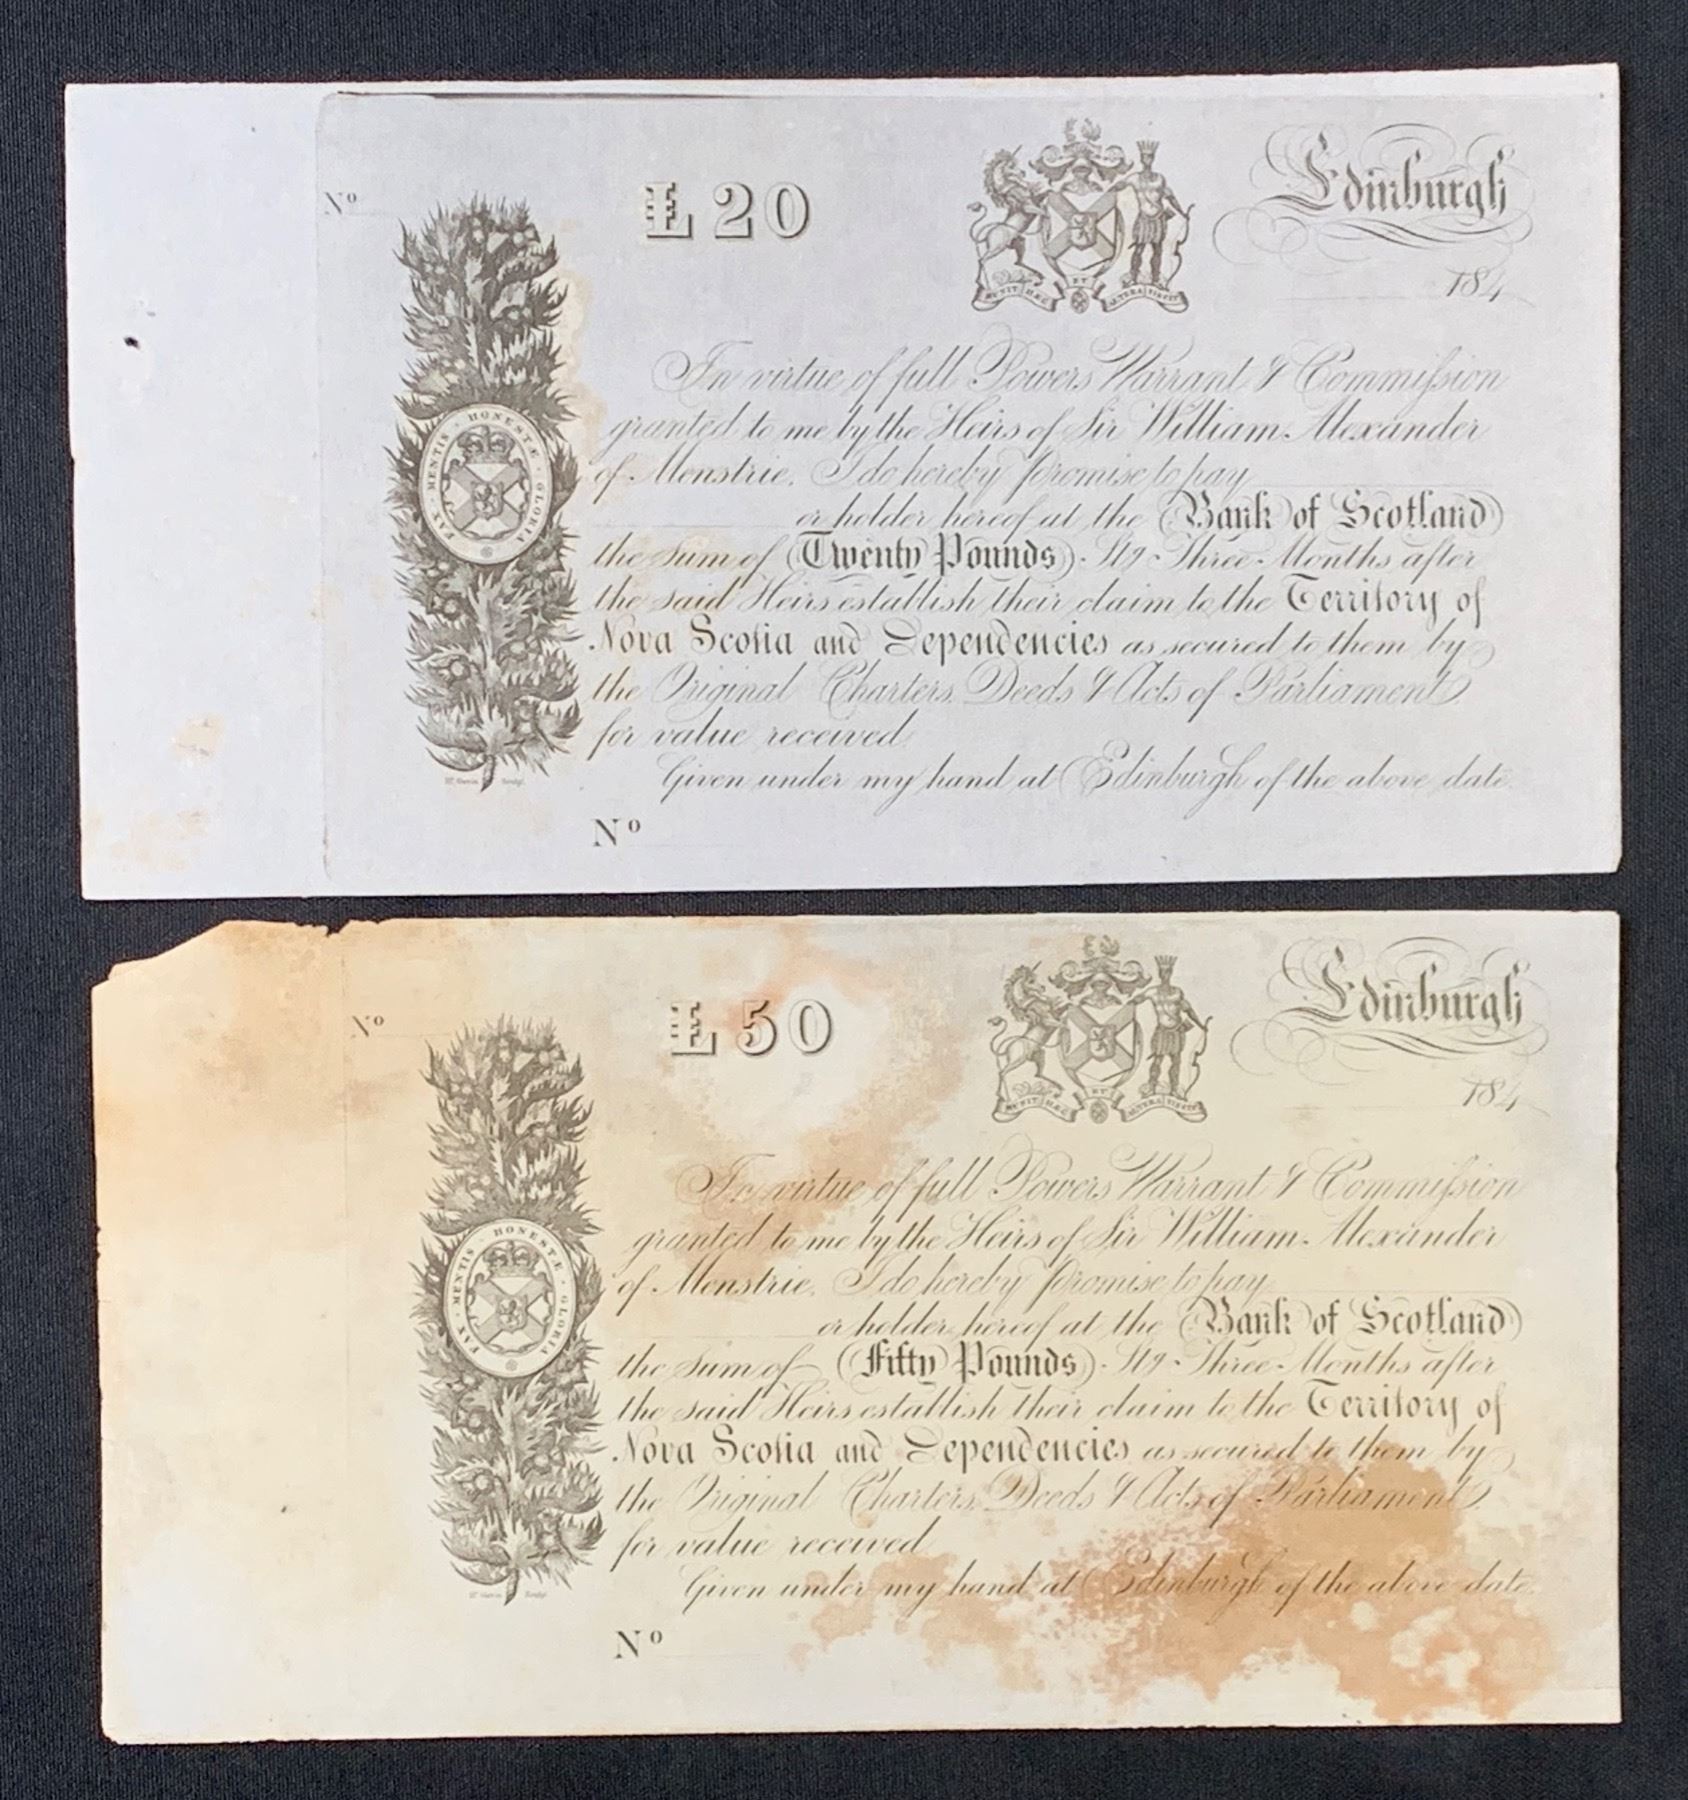 Nº
£ 20
Edinburgh
184
MUNIT HÆC ET ALTERA VINCIT
FAX · MENTIS · HONESTÆ · GLORIA
In virtue of full Powers Warrant & Commission
granted to me by the Heirs of Sir William Alexander
of Menstrie, I do hereby promise to pay
or holder hereof at the Bank of Scotland
the sum of Twenty Pounds Stg Three Months after
the said Heirs establish their claim to the Territory of
Nova Scotia and Dependencies as secured to them by
the Original Charters, Deeds & Acts of Parliament
for value received.
Given under my hand at Edinburgh of the above date.
Sculpt.
Nº
Nº
£ 50
Edinburgh
184
MUNIT HÆC ET ALTERA VINCIT
FAX · MENTIS · HONESTÆ · GLORIA
In virtue of full Powers Warrant & Commission
granted to me by the Heirs of Sir William Alexander
of Menstrie, I do hereby promise to pay
or holder hereof at the Bank of Scotland
the sum of Fifty Pounds Stg Three Months after
the said Heirs establish their claim to the Territory of
Nova Scotia and Dependencies as secured to them by
the Original Charters, Deeds & Acts of Parliament
for value received
Given under my hand at Edinburgh of the above date.
Sculpt.
Nº